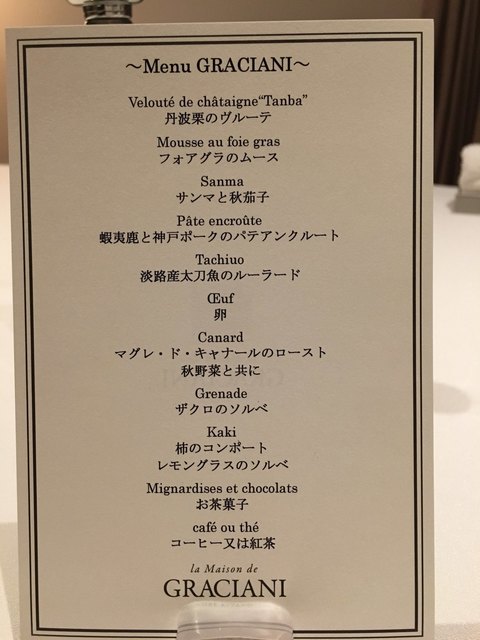 ～Menu GRACIANI～
Velouté de châtaigne“Tanba”
丹波栗のヴルーテ
Mousse au foie gras
フォアグラのムース
Sanma
サンマと秋茄子
Pâte encroûte
蝦夷鹿と神戸ポークのパテアンクルート
Tachiuo
淡路産太刀魚のルーラード
Œuf
卵
Canard
マグレ・ド・キャナールのロースト
秋野菜と共に
Grenade
ザクロのソルベ
Kaki
柿のコンポート
レモングラスのソルベ
Mignardises et chocolats
お茶菓子
café ou thé
コーヒー又は紅茶
la Maison de
GRACIANI